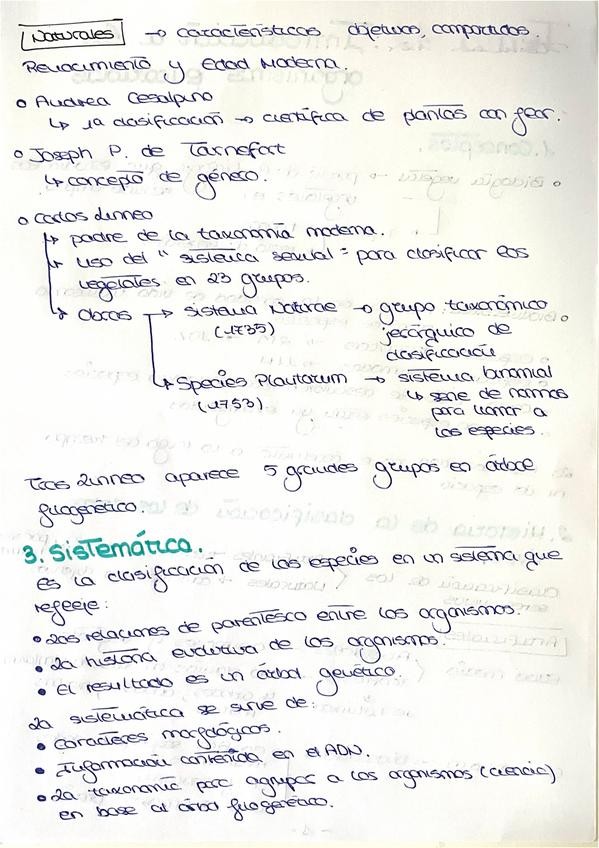 Naturales → características objetivas, compartidas.
Renacimiento y Edad Moderna.
Andrea Cesalpino
↳ 1a clasificación → científica de plantas con flor.
Joseph P. de Tarnefort
↳ concepto de género.
Carlos Linneo
↳ padre de la taxonomía moderna.
↳ uso del "sistema sexual" para clasificar los
vegetales en 23 grupos.
↳ Obras → Sistema Naturae → grupo taxonómico
(1735) jerárquico de
clasificación
↳ Species Plantarum → sistema binomial
(1753) ↳ serie de normas
para llamar a
las especies.
Tras Linneo aparece 5 grandes grupos en árbol
filogenético.
3. Sistemática.
es la clasificación de las especies en un sistema que
refleje:
• Las relaciones de parentesco entre los organismos.
• La historia evolutiva de los organismos.
• El resultado es un árbol genético.
La sistemática se sirve de:
• Caracteres morfológicos.
• Información contenida en el ADN.
• La taxonomía para agrupar a los organismos (ciencia)
en base al árbol filogenético.